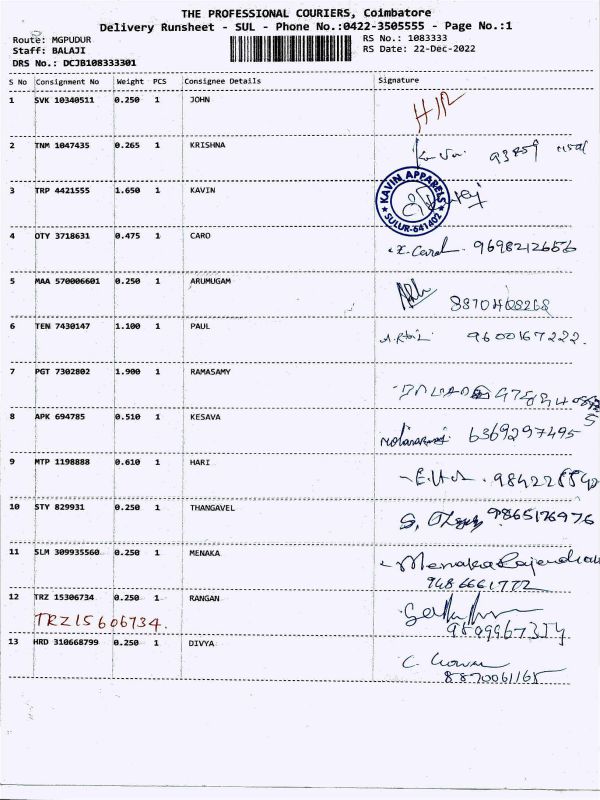 THE PROFESSIONAL COURIERS, Coimbatore
Delivery Runsheet - SUL - Phone No.:0422-3505555 - Page No.:1
Route: MGPUDUR
RS No.: 1083333
Staff: BALAJI
RS Date: 22-Dec-2022
DRS No.: DCJB108333301
S No Consignment No Weight PCS Consignee Details Signature
1 SVK 10340511 0.250 1 JOHN
2 TNM 1047435 0.265 1 KRISHNA
3 TRP 4421555 1.650 1 KAVIN
KAVIN APPARELS
SULUR-641402
4 OTY 3718631 0.475 1 CARO 9698212656
5 MAA 570006601 0.250 1 ARUMUGAM
8870408268
6 TEN 7430147 1.100 1 PAUL 9600167222
7 PGT 7302802 1.900 1 RAMASAMY
8 APK 694785 0.510 1 KESAVA
6369297495
9 MTP 1198888 0.610 1 HARI
10 STY 829931 0.250 1 THANGAVEL 9865176976
11 SLM 309935560 0.250 1 MENAKA Menaka Rajendran
9486661772
12 TRZ 15306734 0.250 1 RANGAN
TRZ15606734.
13 HRD 310668799 0.250 1 DIVYA
8870061165